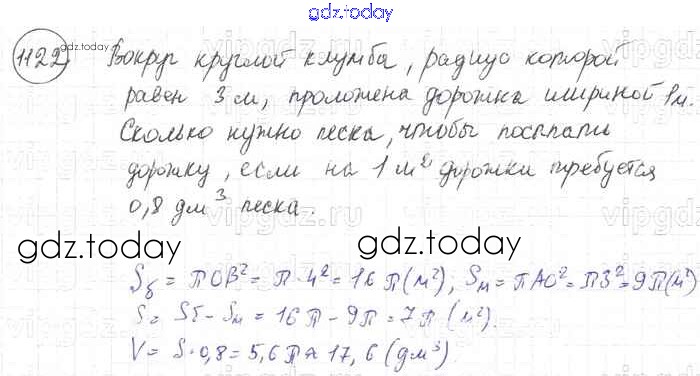 gdz.today
1122 gdz.today Вокруг круглой клумба, радиус которой
равен 3 м, проложена дорожка шириной 1 м.
Сколько нужно песка, чтобы посыпать
дорожку, если на 1 м² дорожки требуется
0,8 дм³ песка.
gdz.today gdz.today
Sб = πOB² = π·4² = 16π(м²); Sм = πAO² = π3² = 9π(м²)
S = Sб - Sм = 16π - 9π = 7π (м²).
V = S·0,8 = 5,6π ≈ 17,6 (дм³).